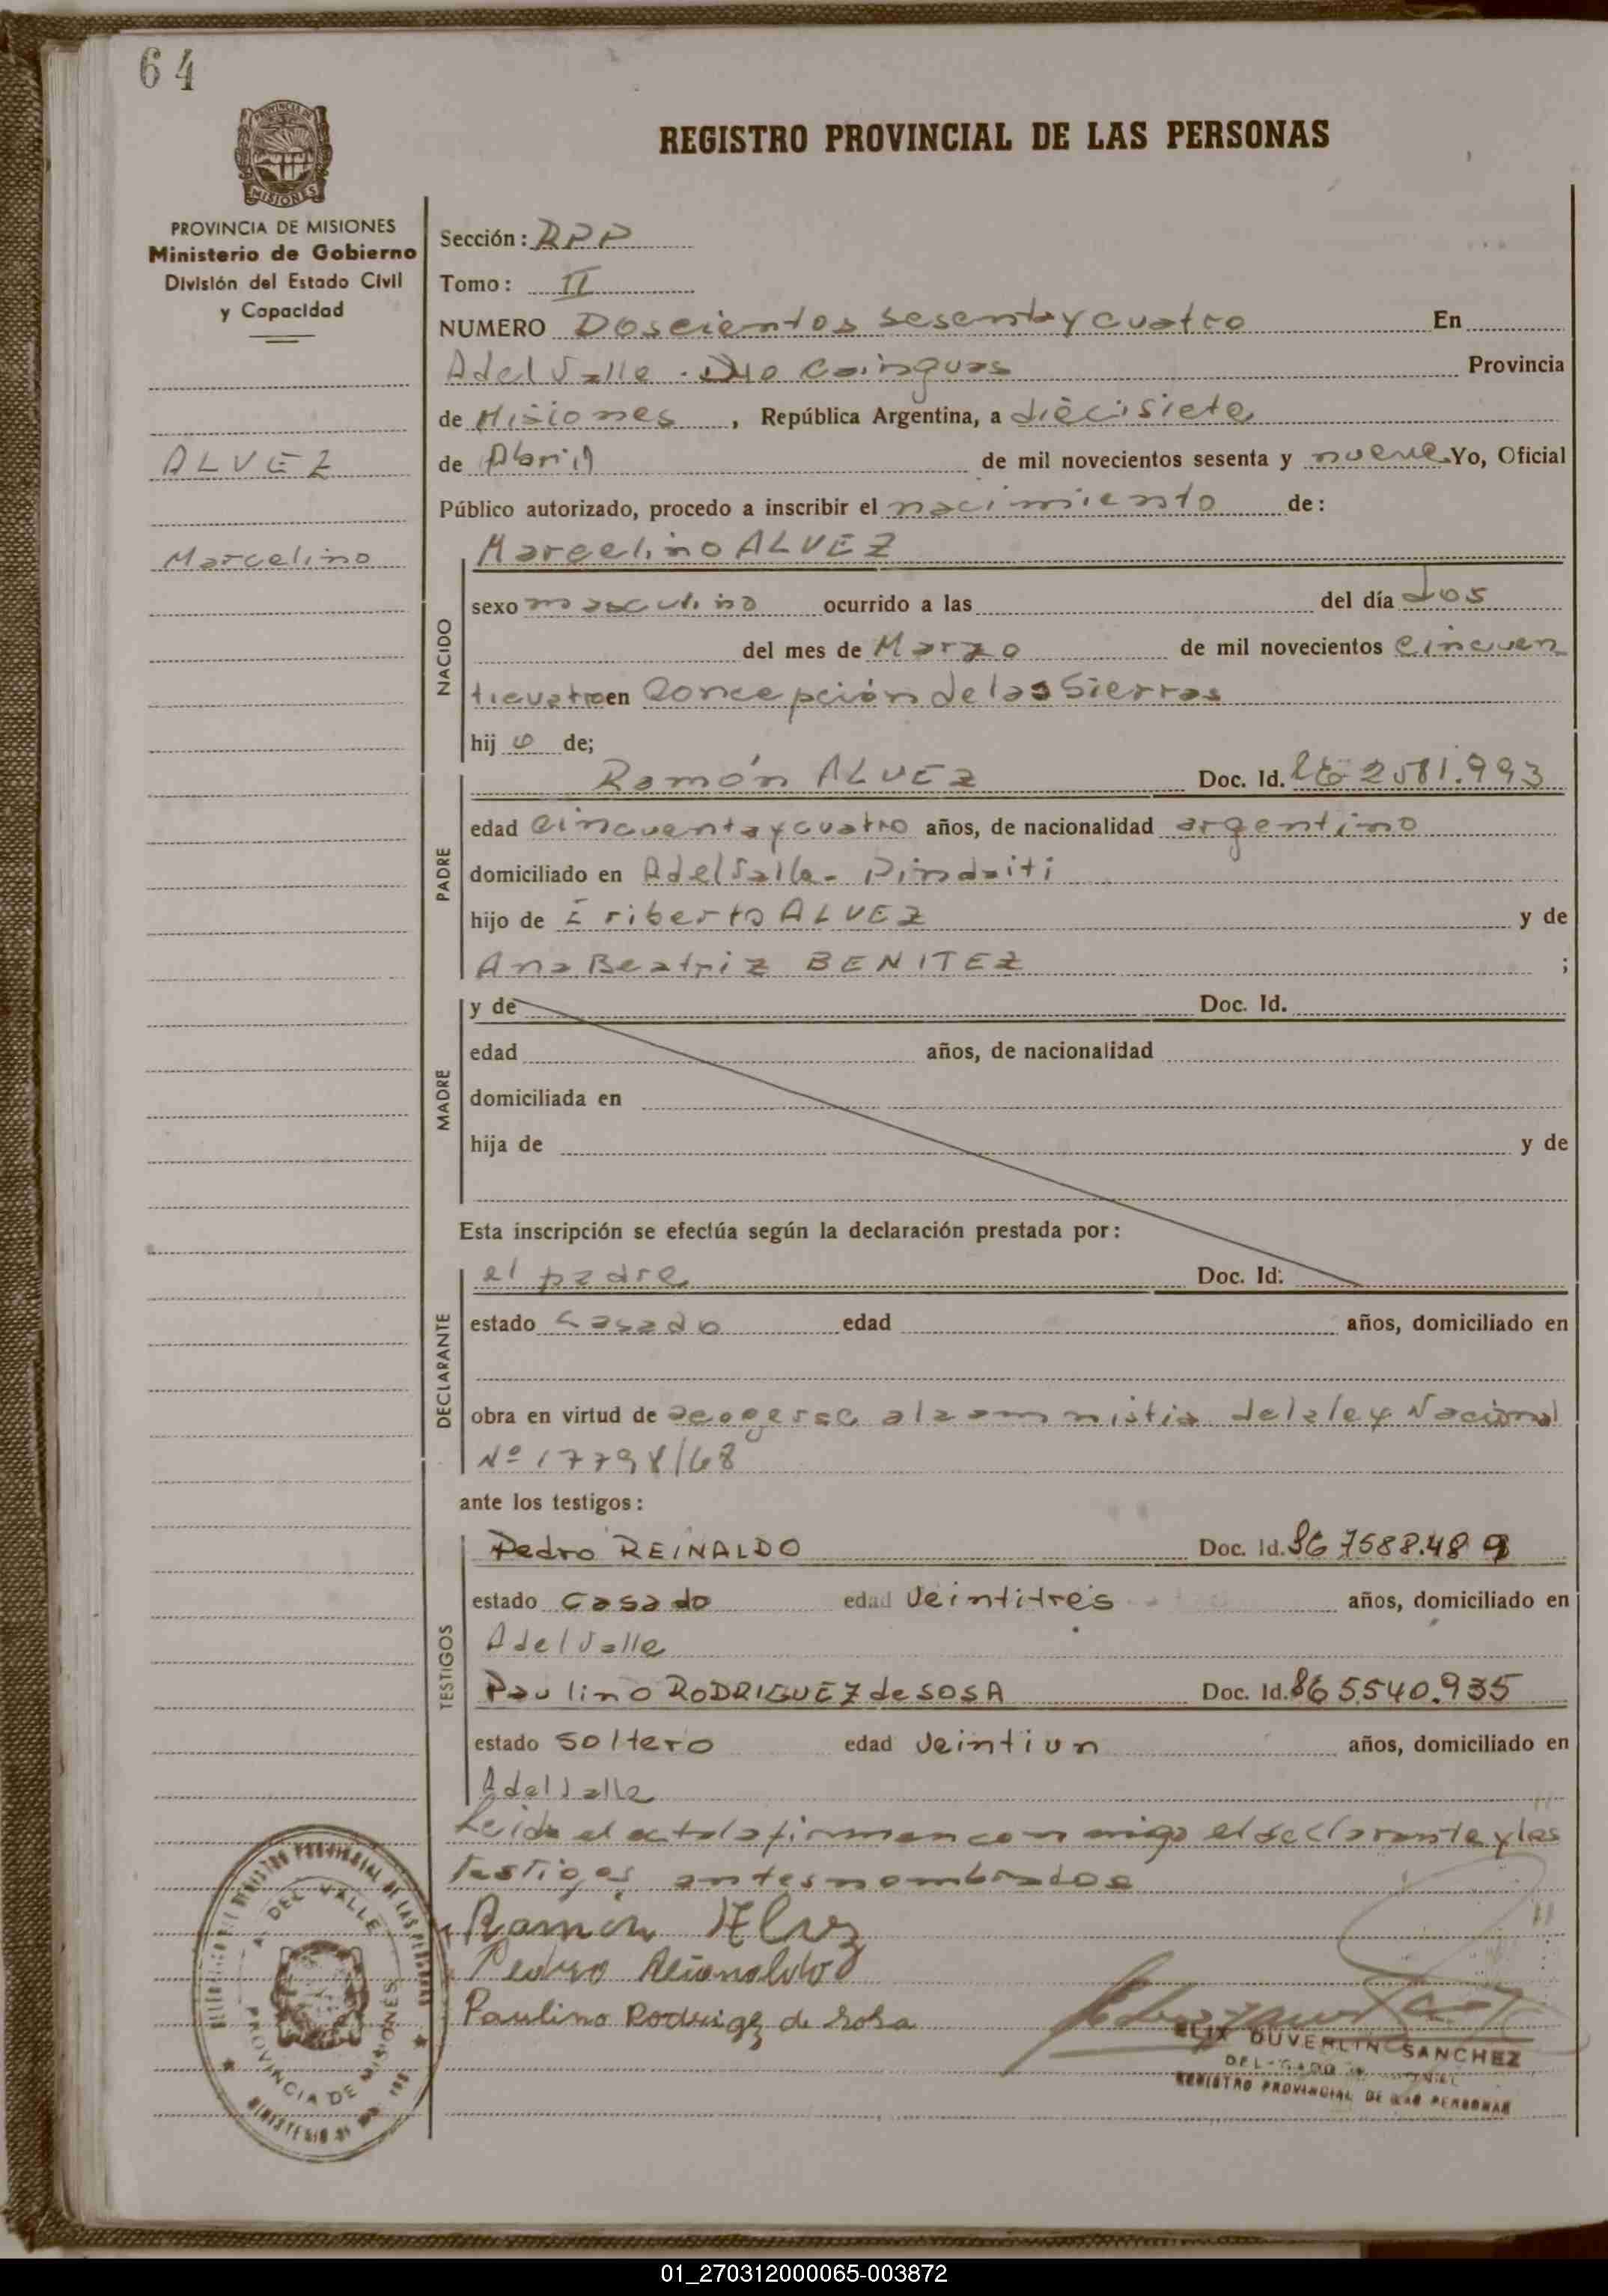 64
PROVINCIA DE
MISIONES
REGISTRO PROVINCIAL DE LAS PERSONAS
PROVINCIA DE MISIONES
Ministerio de Gobierno
División del Estado Civil
y Capacidad
ALVEZ
Marcelino
Sección: RPP
Tomo: II
NUMERO Doscientos sesenta y cuatro En
A del Valle - Dto Cainguas Provincia
de Misiones, República Argentina, a diecisiete
de Abril de mil novecientos sesenta y nueve Yo, Oficial
Público autorizado, procedo a inscribir el nacimiento de:
NACIDO
Marcelino ALVEZ
sexo masculino ocurrido a las del día dos
del mes de Marzo de mil novecientos cincuen
ticuatro en Concepción de las Sierras
hij o de;
PADRE
Ramón ALVEZ Doc. Id. 2581.993
edad cincuenta y cuatro años, de nacionalidad argentino
domiciliado en A del Valle - Pindaiti
hijo de Eriberto ALVEZ y de
Ana Beatriz BENITEZ ;
MADRE
y de Doc. Id.
edad años, de nacionalidad
domiciliada en
hija de y de
Esta inscripción se efectúa según la declaración prestada por:
DECLARANTE
el padre Doc. Id:
estado casado edad años, domiciliado en
obra en virtud de acogerse a la amnistia de la ley Nacional
Nº 17798/68
ante los testigos:
TESTIGOS
Pedro REINALDO Doc. Id. 7588.489
estado casado edad veintitres años, domiciliado en
A del Valle
Paulino RODRIGUEZ de SOSA Doc. Id. 5540.935
estado soltero edad veintiun años, domiciliado en
A del Valle
Leida el acta la firman conmigo el declarante y los
testigos antes nombrados
Ramón Alvez
Pedro Reinaldo
Paulino Rodrigez de Sosa
DUVERLIN SANCHEZ
REGISTRO PROVINCIAL DE LAS PERSONAS
REGISTRO PROVINCIAL DE LAS PERSONAS
A. DEL VALLE
PROVINCIA DE MISIONES
01_270312000065-003872